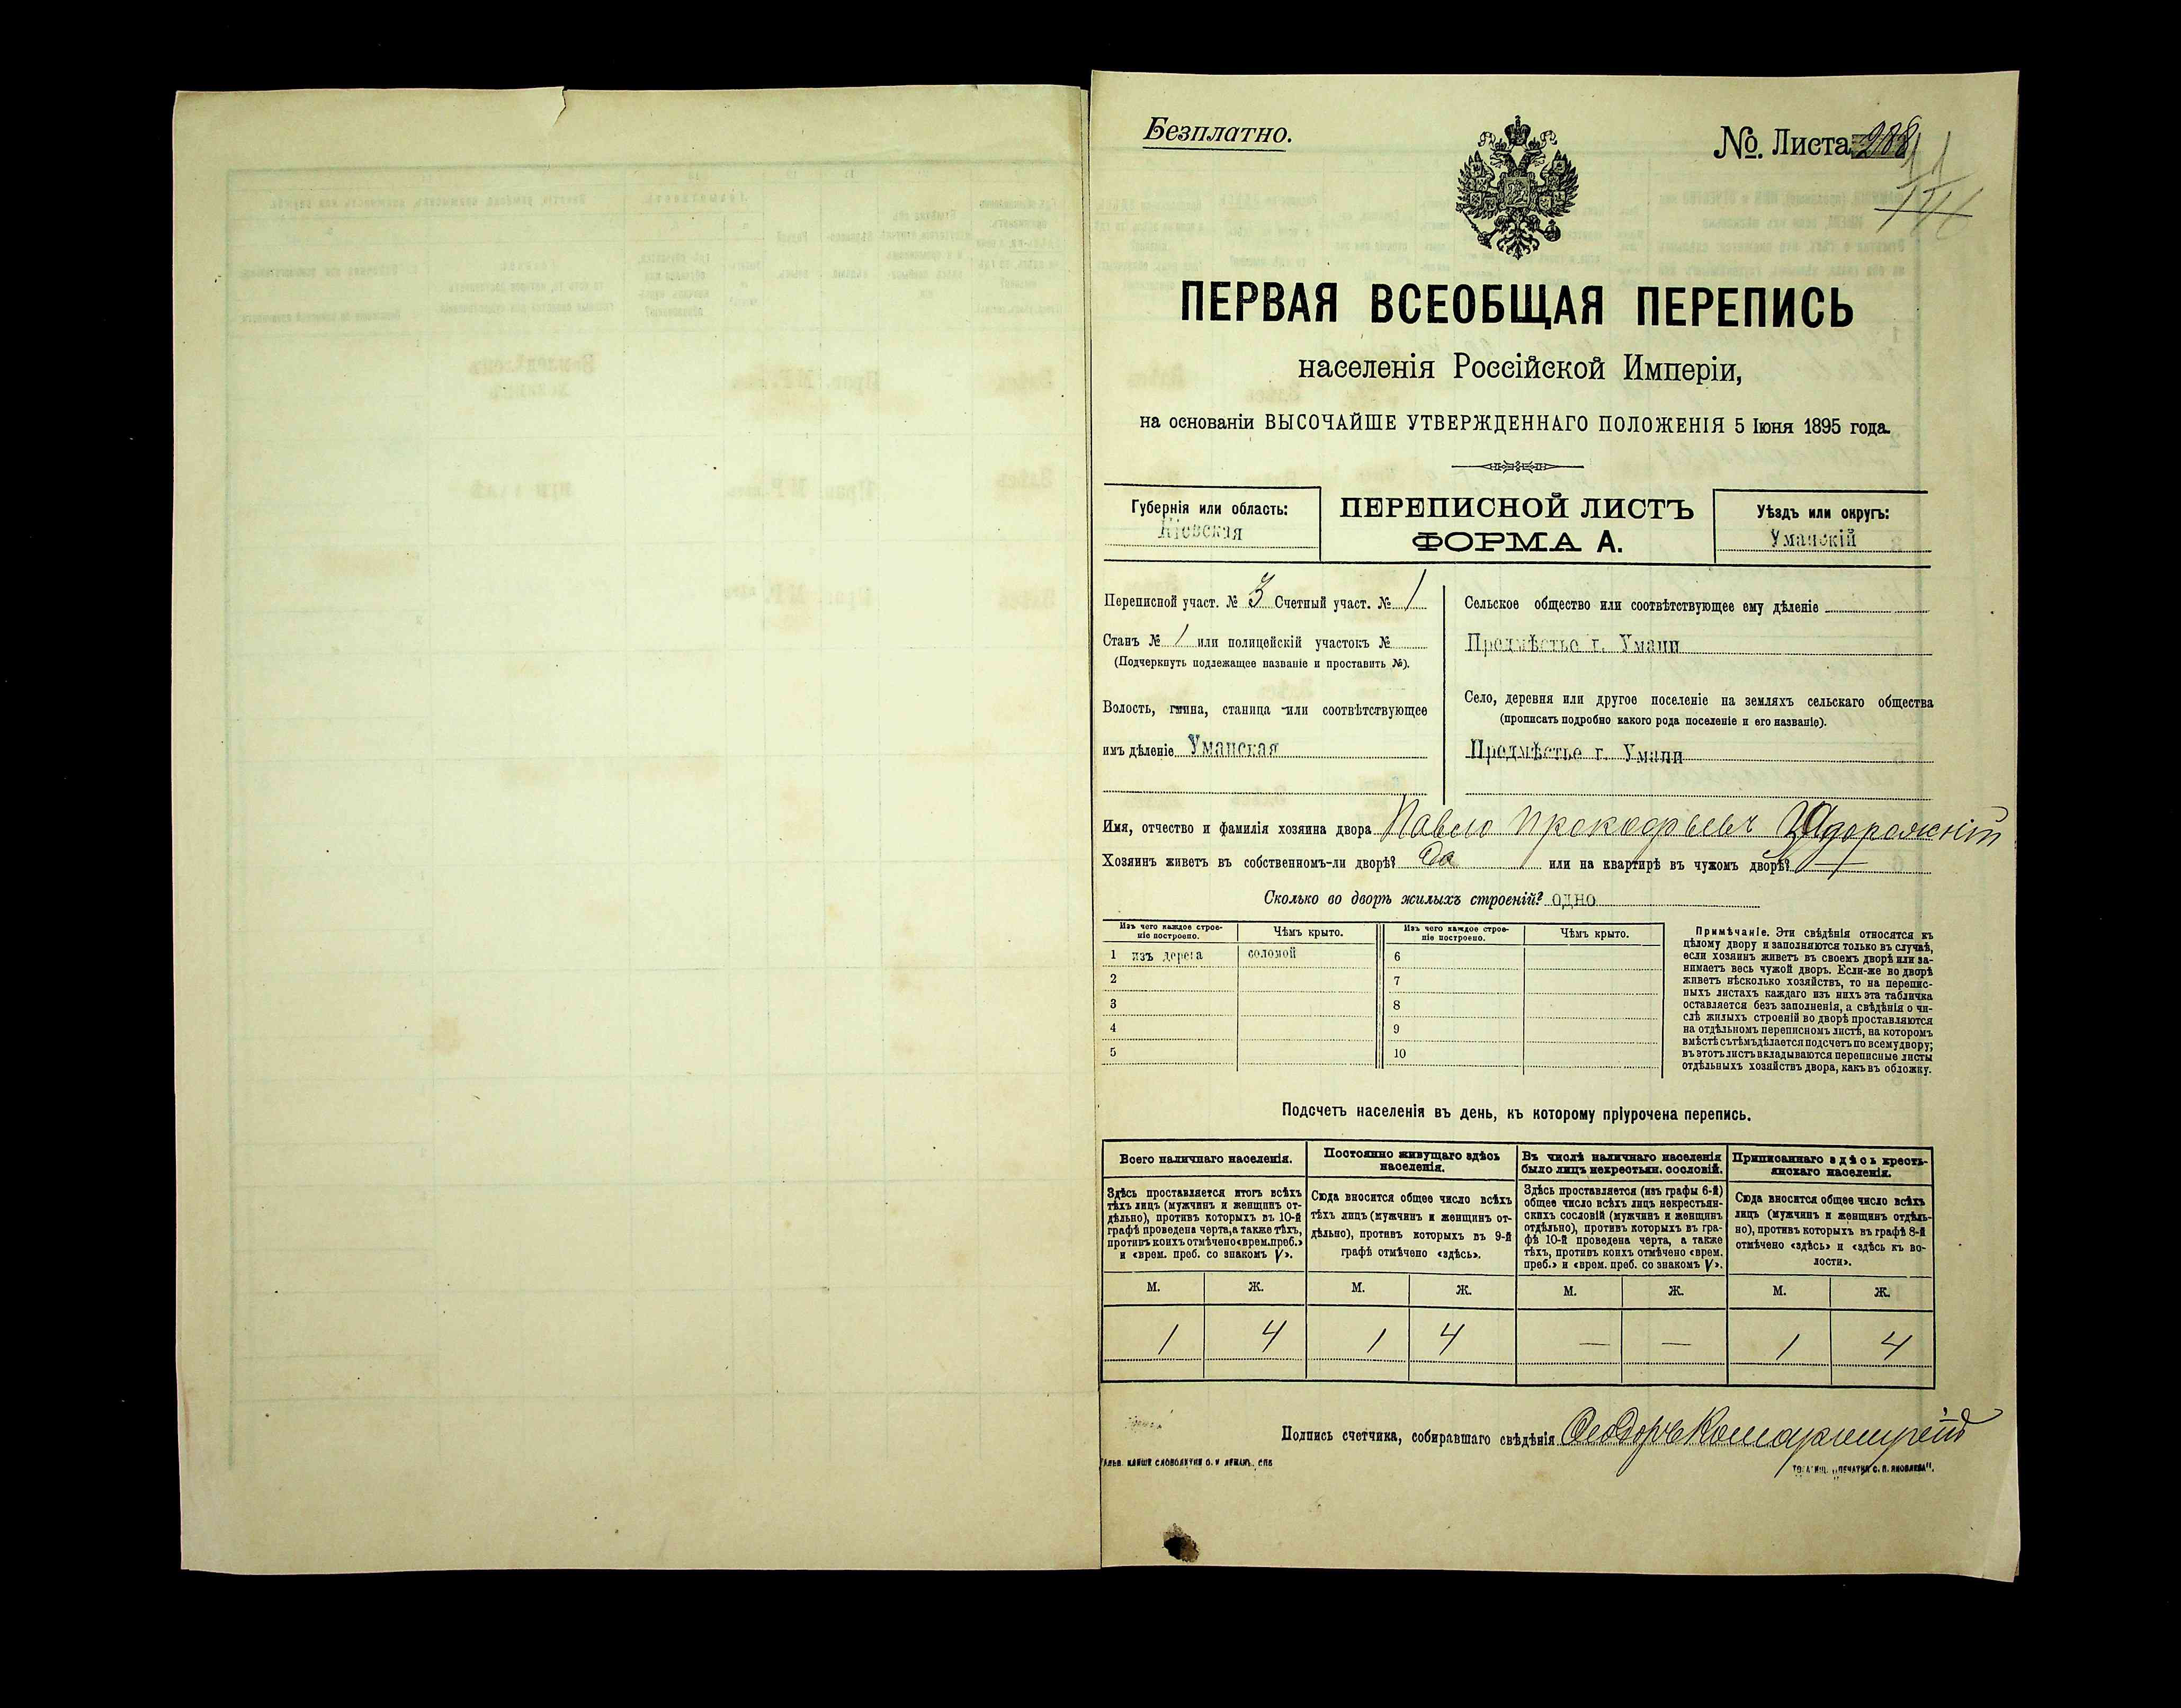 Безплатно.
№. Листа 288
ПЕРВАЯ ВСЕОБЩАЯ ПЕРЕПИСЬ
населенія Россійской Имперіи,
на основаніи ВЫСОЧАЙШЕ УТВЕРЖДЕННАГО ПОЛОЖЕНІЯ 5 Іюня 1895 года.
Губернія или область:
Кіевская
ПЕРЕПИСНОЙ ЛИСТЪ
ФОРМА А.
Уѣздъ или округъ:
Уманскій
Переписной участ. № 3 Счетный участ. № 1
Станъ № 1 или полицейскій участокъ №
(Подчеркнуть подлежащее названіе и проставить №).
Волость, гмина, станица или соотвѣтствующее
имъ дѣленіе Уманская
Сельское общество или соотвѣтствующее ему дѣленіе
Предмѣстье г. Умани
Село, деревня или другое поселеніе на земляхъ сельскаго общества
(прописать подробно какого рода поселеніе и его названіе).
Предмѣстье г. Умани
Имя, отчество и фамилія хозяина двора Павло Прокофьевъ Задорожній
Хозяинъ живетъ въ собственномъ-ли дворѣ? Да или на квартирѣ въ чужомъ дворѣ? —
Сколько во дворѣ жилыхъ строеній? одно
Изъ чего каждое строе-
ніе построено.
Чѣмъ крыто.
Изъ чего каждое строе-
ніе построено.
Чѣмъ крыто.
1 изъ дерева соломой 6
2 7
3 8
4 9
5 10
Примѣчаніе. Эти свѣдѣнія относятся къ
цѣлому двору и заполняются только въ случаѣ,
если хозяинъ живетъ въ своемъ дворѣ или за-
нимаетъ весь чужой дворъ. Если-же во дворѣ
живетъ нѣсколько хозяйствъ, то на перепис-
ныхъ листахъ каждаго изъ нихъ эта табличка
оставляется безъ заполненія, а свѣдѣнія о чи-
слѣ жилыхъ строеній во дворѣ проставляются
на отдѣльномъ переписномъ листѣ, на которомъ
вмѣстѣ съ тѣмъ дѣлается подсчетъ по всему двору;
въ этотъ листъ вкладываются переписные листы
отдѣльныхъ хозяйствъ двора, какъ въ обложку.
Подсчетъ населенія въ день, къ которому пріурочена перепись.
Всего наличнаго населенія.
Здѣсь проставляется итогъ всѣхъ
тѣхъ лицъ (мужчинъ и женщинъ от-
дѣльно), противъ которыхъ въ 10-й
графѣ проведена черта, а также тѣхъ,
противъ коихъ отмѣчено «врем. преб.»
и «врем. преб. со знакомъ V».
Постоянно живущаго здѣсь
населенія.
Сюда вносится общее число всѣхъ
тѣхъ лицъ (мужчинъ и женщинъ от-
дѣльно), противъ которыхъ въ 9-й
графѣ отмѣчено «здѣсь».
Въ числѣ наличнаго населенія
было лицъ некрестьян. сословій.
Здѣсь проставляется (изъ графы 6-й)
общее число всѣхъ лицъ некрестьян-
скихъ сословій (мужчинъ и женщинъ
отдѣльно), противъ которыхъ въ гра-
фѣ 10-й проведена черта, а также
тѣхъ, противъ коихъ отмѣчено «врем.
преб.» и «врем. преб. со знакомъ V».
Приписаннаго здѣсь кресть-
янскаго населенія.
Сюда вносится общее число всѣхъ
лицъ (мужчинъ и женщинъ отдѣль-
но), противъ которыхъ въ графѣ 8-й
отмѣчено «здѣсь» и «здѣсь къ во-
лости».
М. Ж. М. Ж. М. Ж. М. Ж.
1 4 1 4 — — 1 4
Подпись счетчика, собиравшаго свѣдѣнія Ѳеодоръ